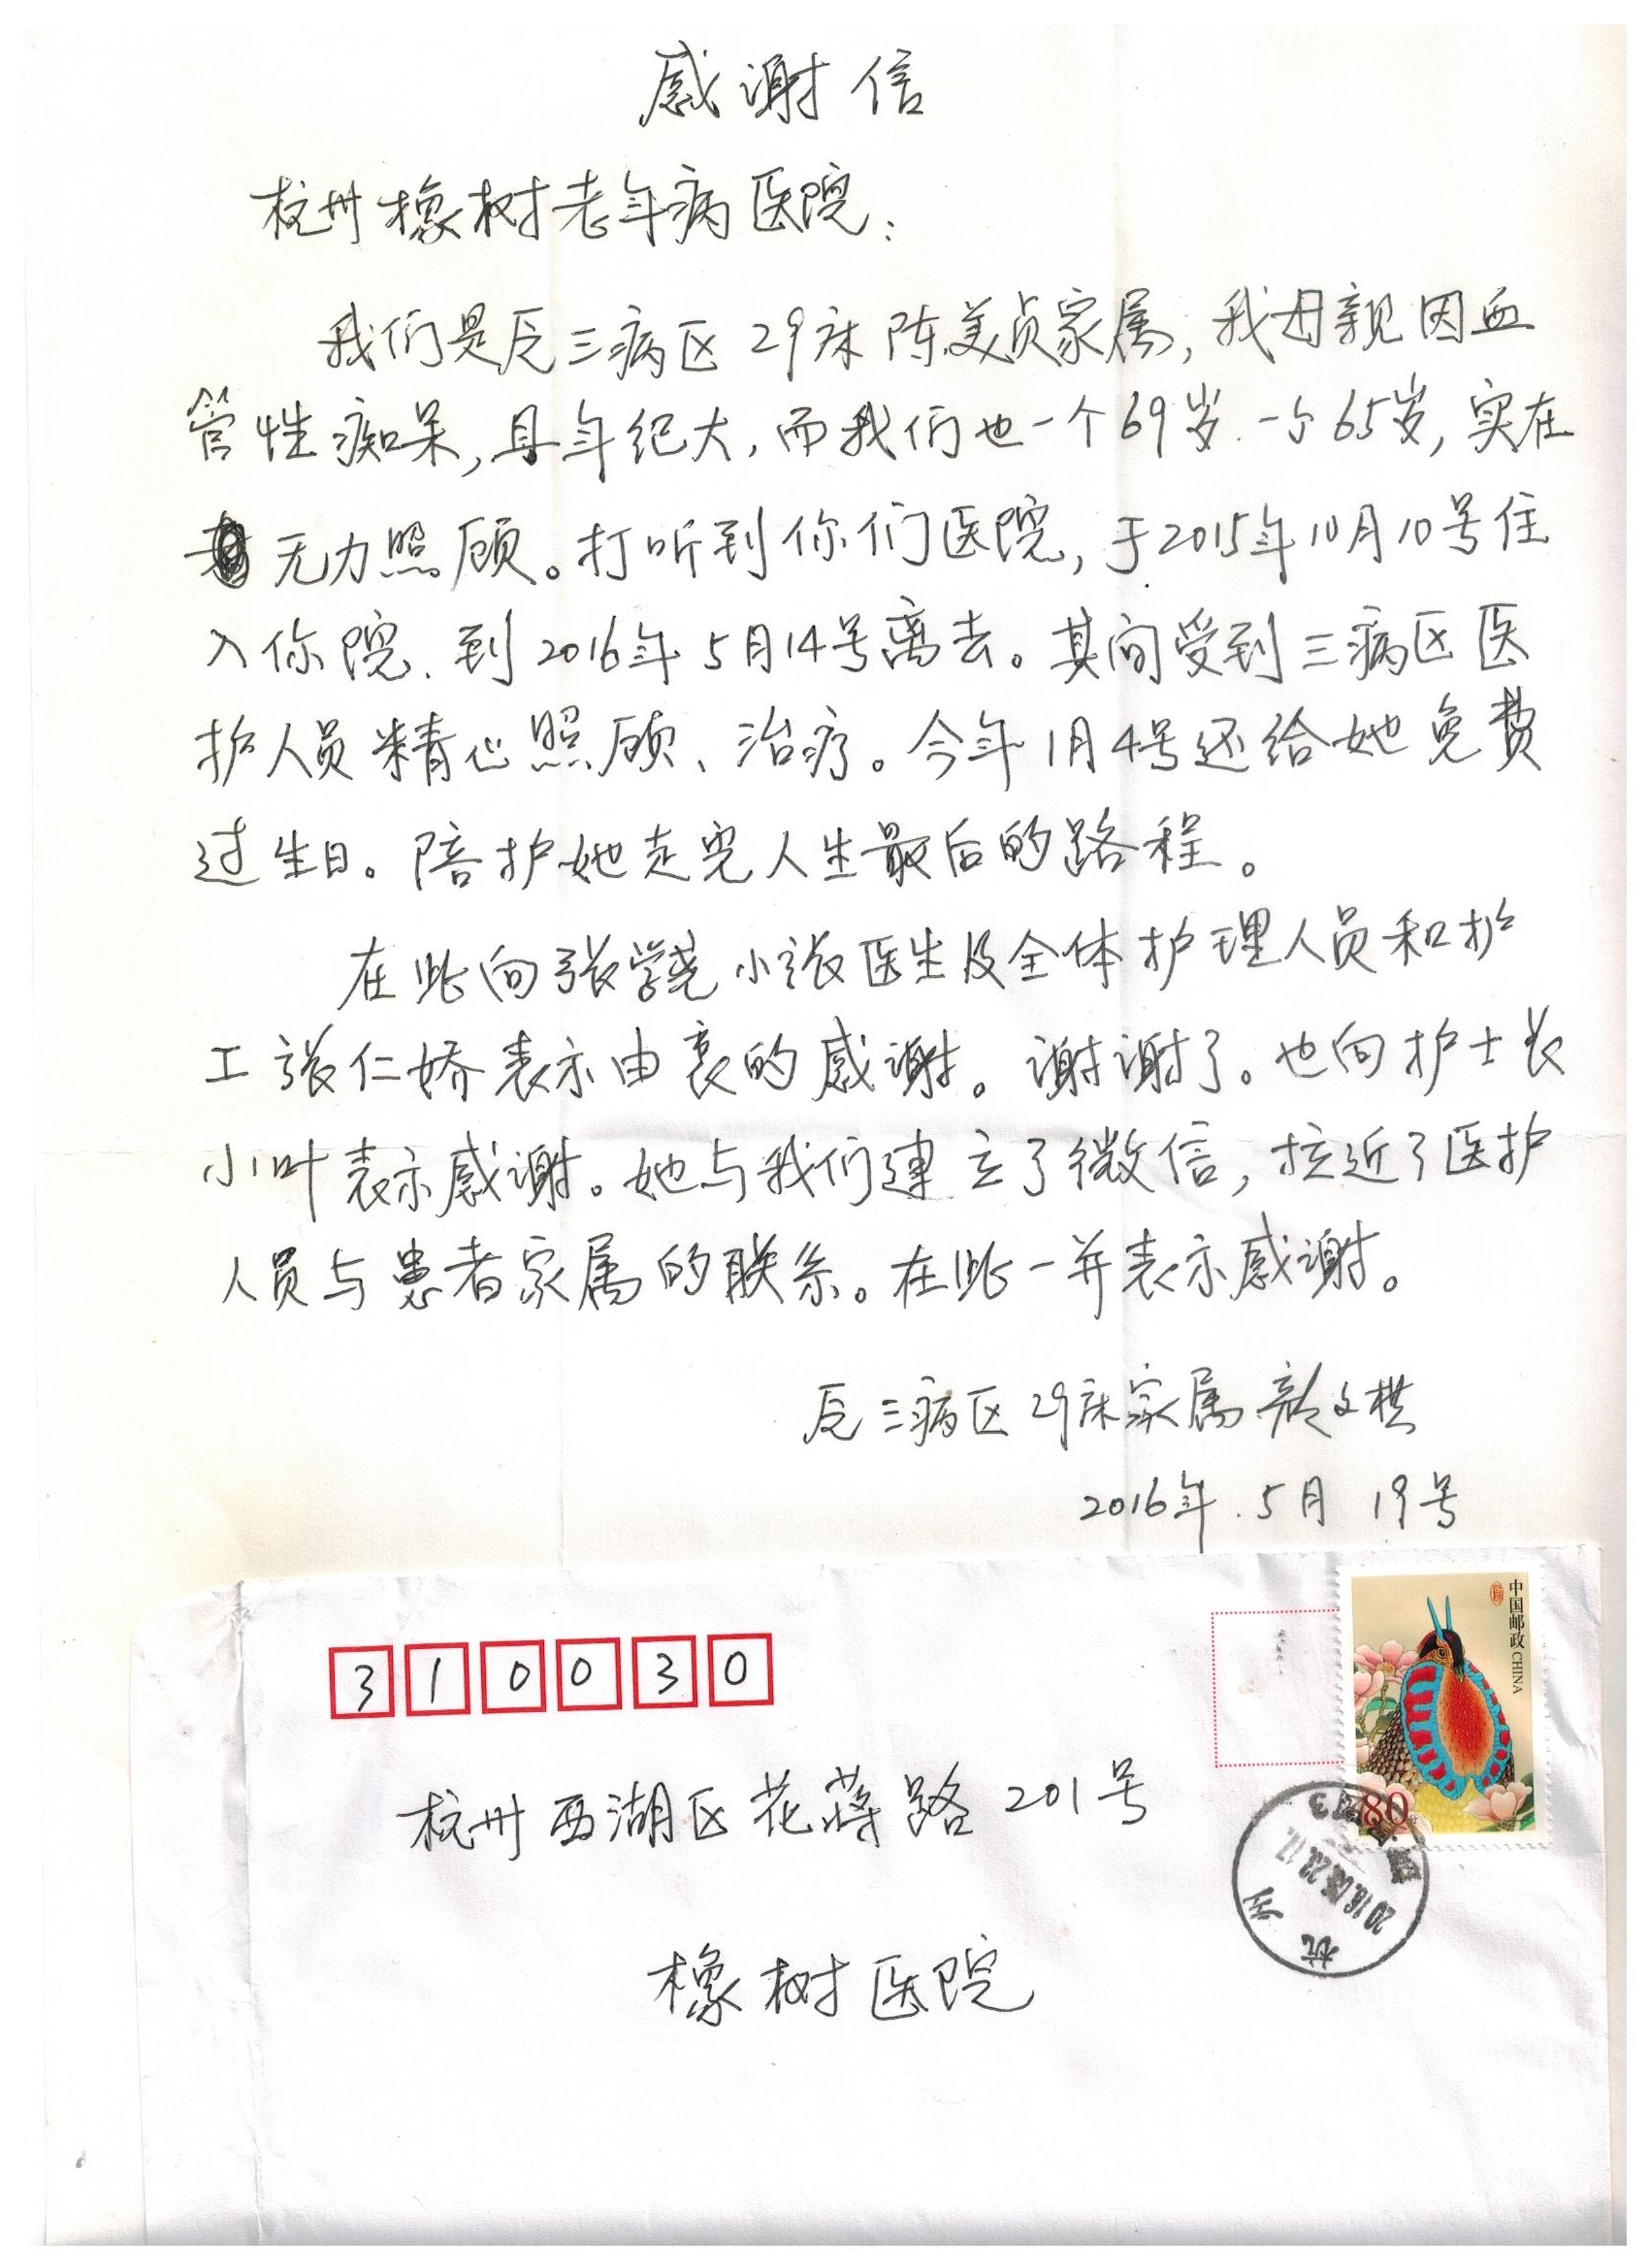 感谢信
杭州橡树老年病医院：
我们是反三病区29床陈美贞家属，我母亲因血
管性痴呆，且年纪大，而我们也一个69岁.一个65岁，实在
无力照顾。打听到你们医院，于2015年10月10号住
入你院、到2016年5月14号离去。其间受到三病区医
护人员精心照顾、治疗。今年1月4号还给她免费
过生日。陪护她走完人生最后的路程。
在此向张学尧小张医生及全体护理人员和护
工张仁娇表示由衷的感谢。谢谢了。也向护士长
小叶表示感谢。她与我们建立了微信，拉近了医护
人员与患者家属的联系。在此一并表示感谢。
反三病区29床家属 文
2016年.5月 19号
中国邮政 CHINA
310030
80
杭州西湖区花蒋路201号
杭州
橡树医院